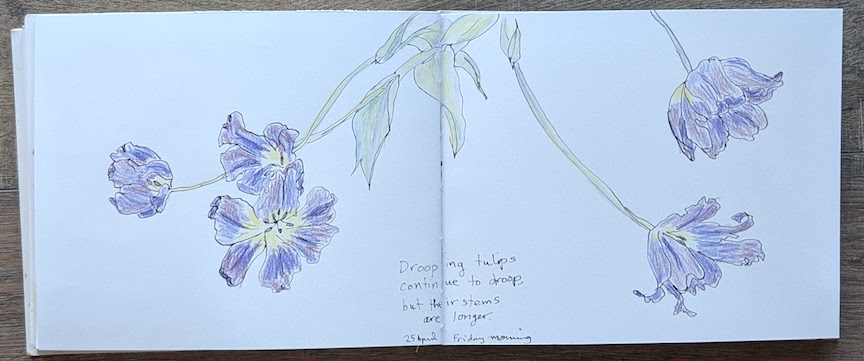 Drooping tulips
continue to droop,
but their stems
are longer.
25 April Friday morning